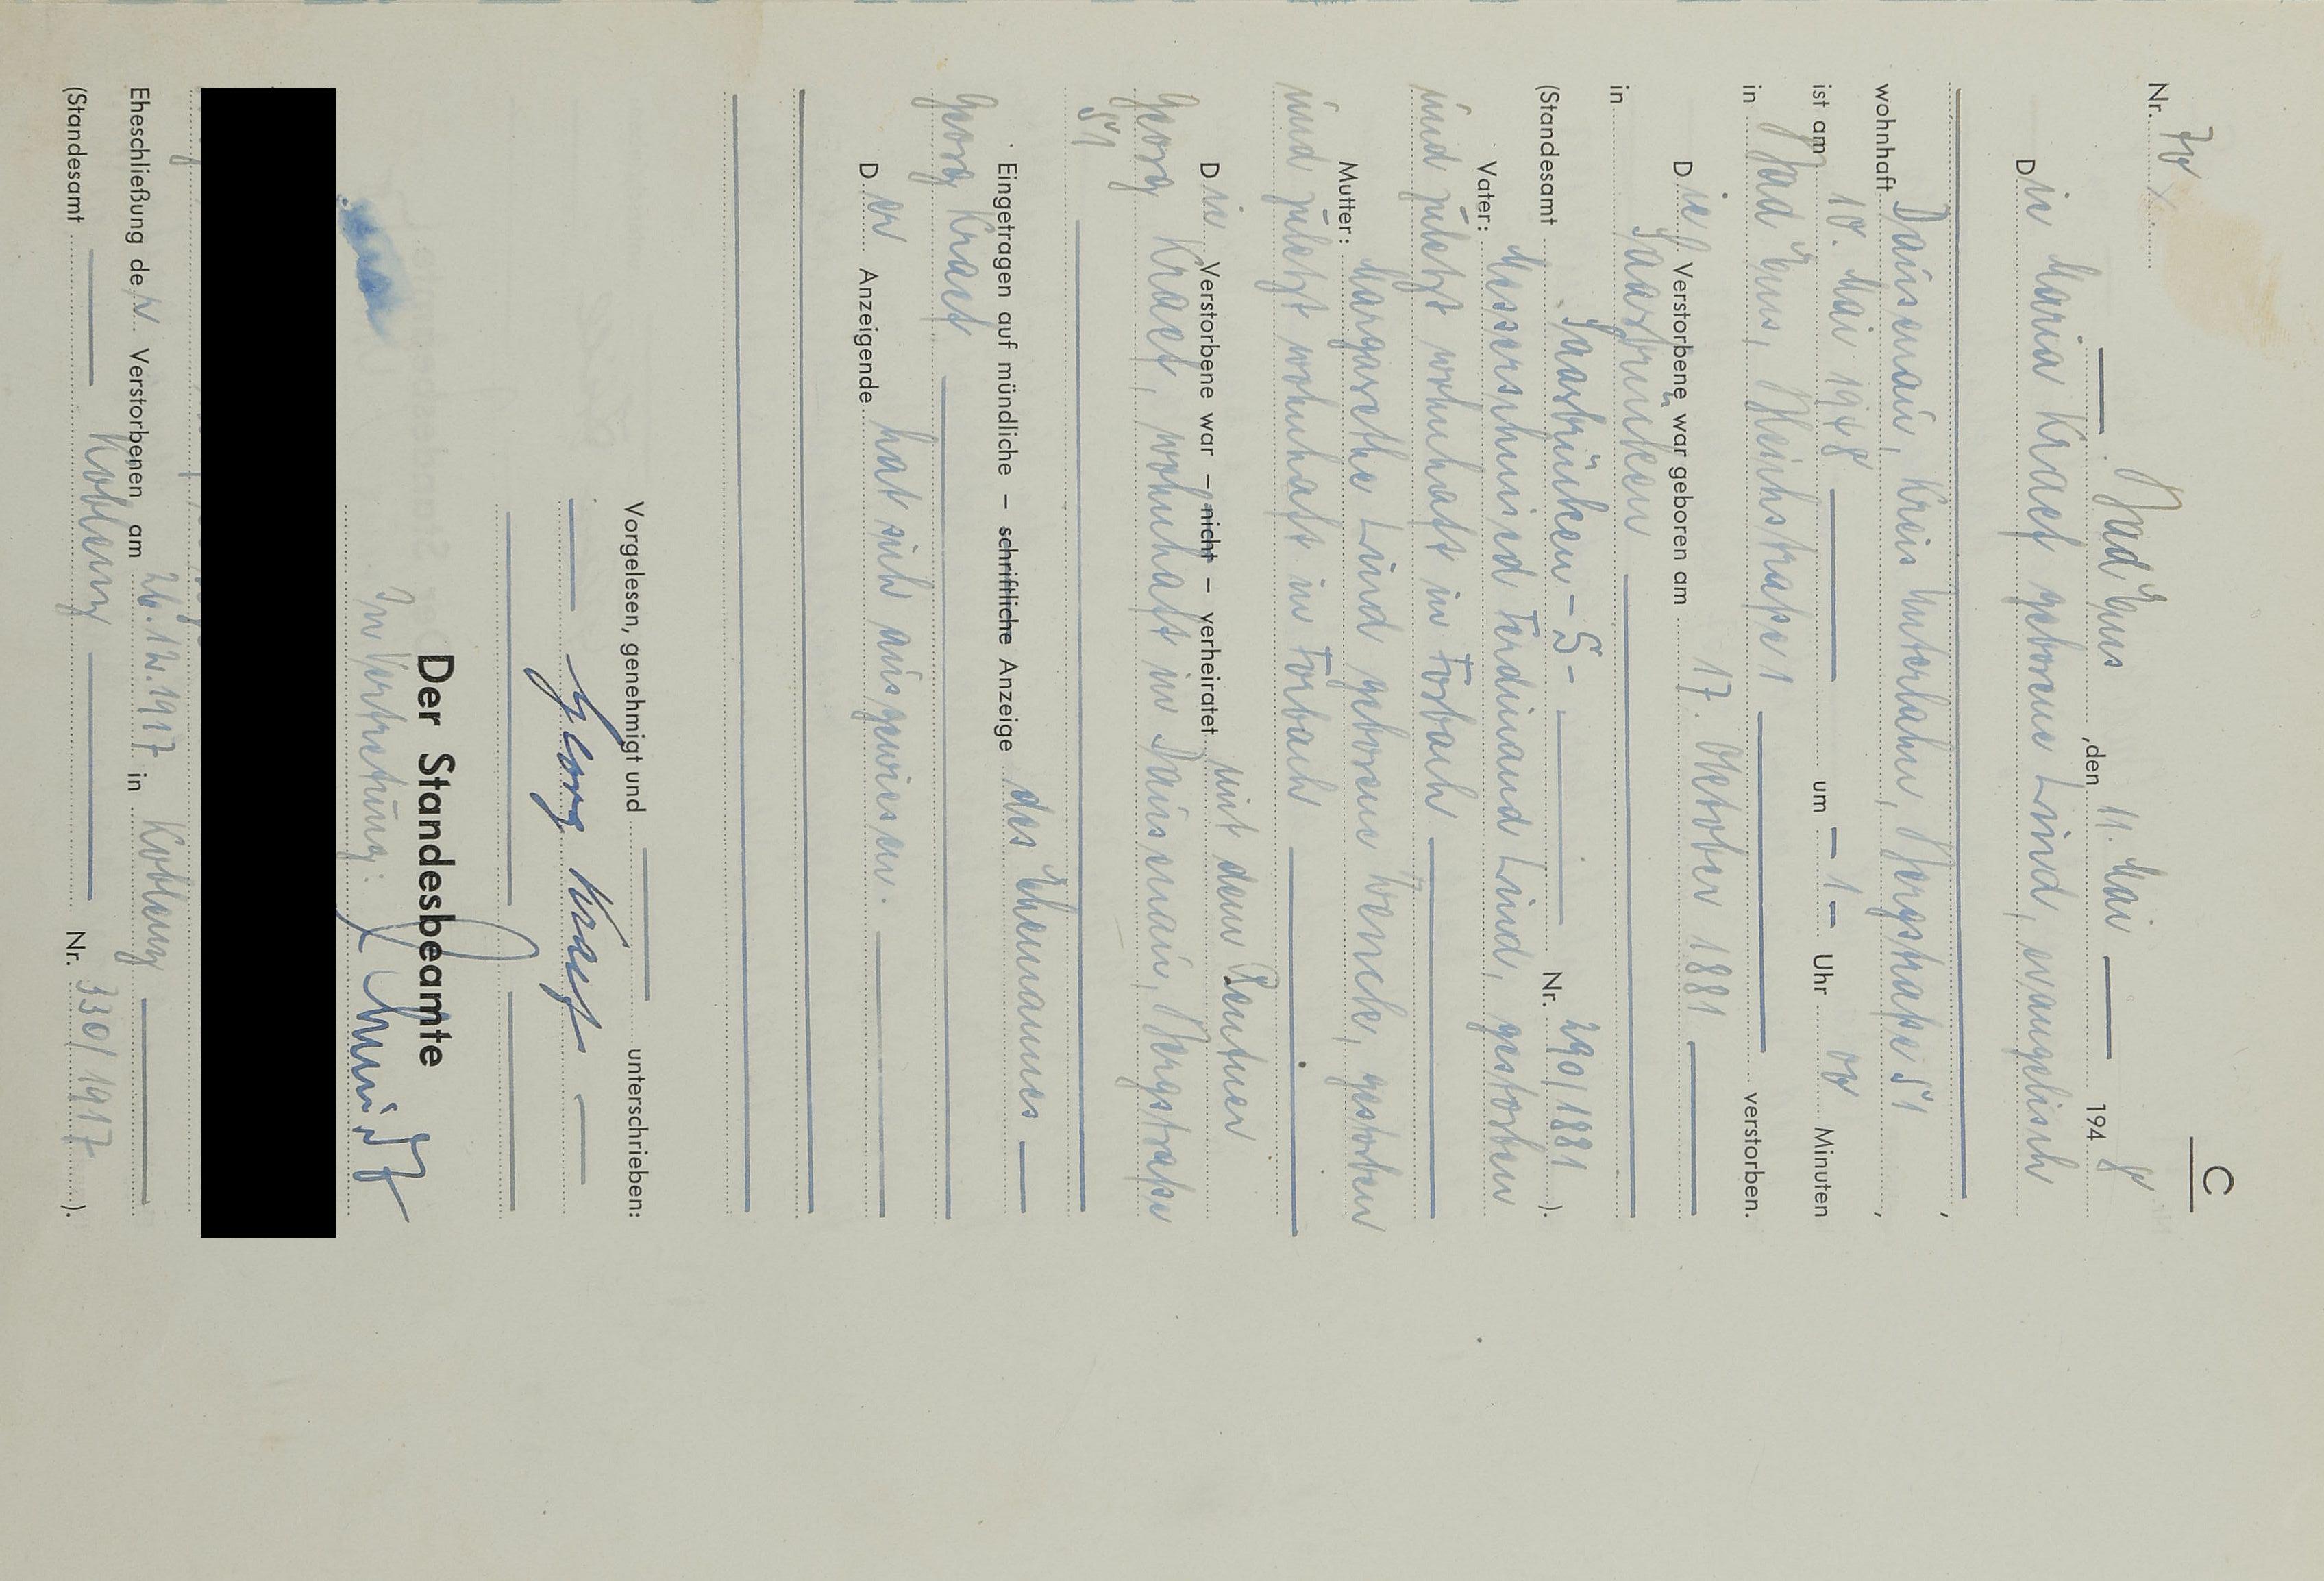 C
Nr. 70
Bad Ems, den 11. Mai 1948
Die Maria Kraef geborene Lind, evangelisch
wohnhaft Dausenau, Kreis Unterlahn, Bergstraße 51,
ist am 10. Mai 1948 um 1 Uhr 00 Minuten
in Bad Ems, Bleichstraße 1 verstorben.
Die Verstorbene war geboren am 17. Oktober 1881
in Saarbrücken
(Standesamt Saarbrücken - S - Nr. 290/1881).
Vater: Messerschmied Ferdinand Lind, gestorben
und zuletzt wohnhaft in Forbach
Mutter: Margarethe Lind geborene Wenck, gestorben
und zuletzt wohnhaft in Forbach
Die Verstorbene war – nicht – verheiratet mit dem Rentner
Georg Kraef, wohnhaft in Dausenau, Bergstraße
51
Eingetragen auf mündliche – schriftliche Anzeige des Ehemannes
Georg Kraef
Der Anzeigende hat sich ausgewiesen.
Vorgelesen, genehmigt und unterschrieben:
Georg Kraef
Der Standesbeamte
In Vertretung: Schmidt
Eheschließung der Verstorbenen am 26.12.1917 in Koblenz
(Standesamt Koblenz Nr. 330/1917).